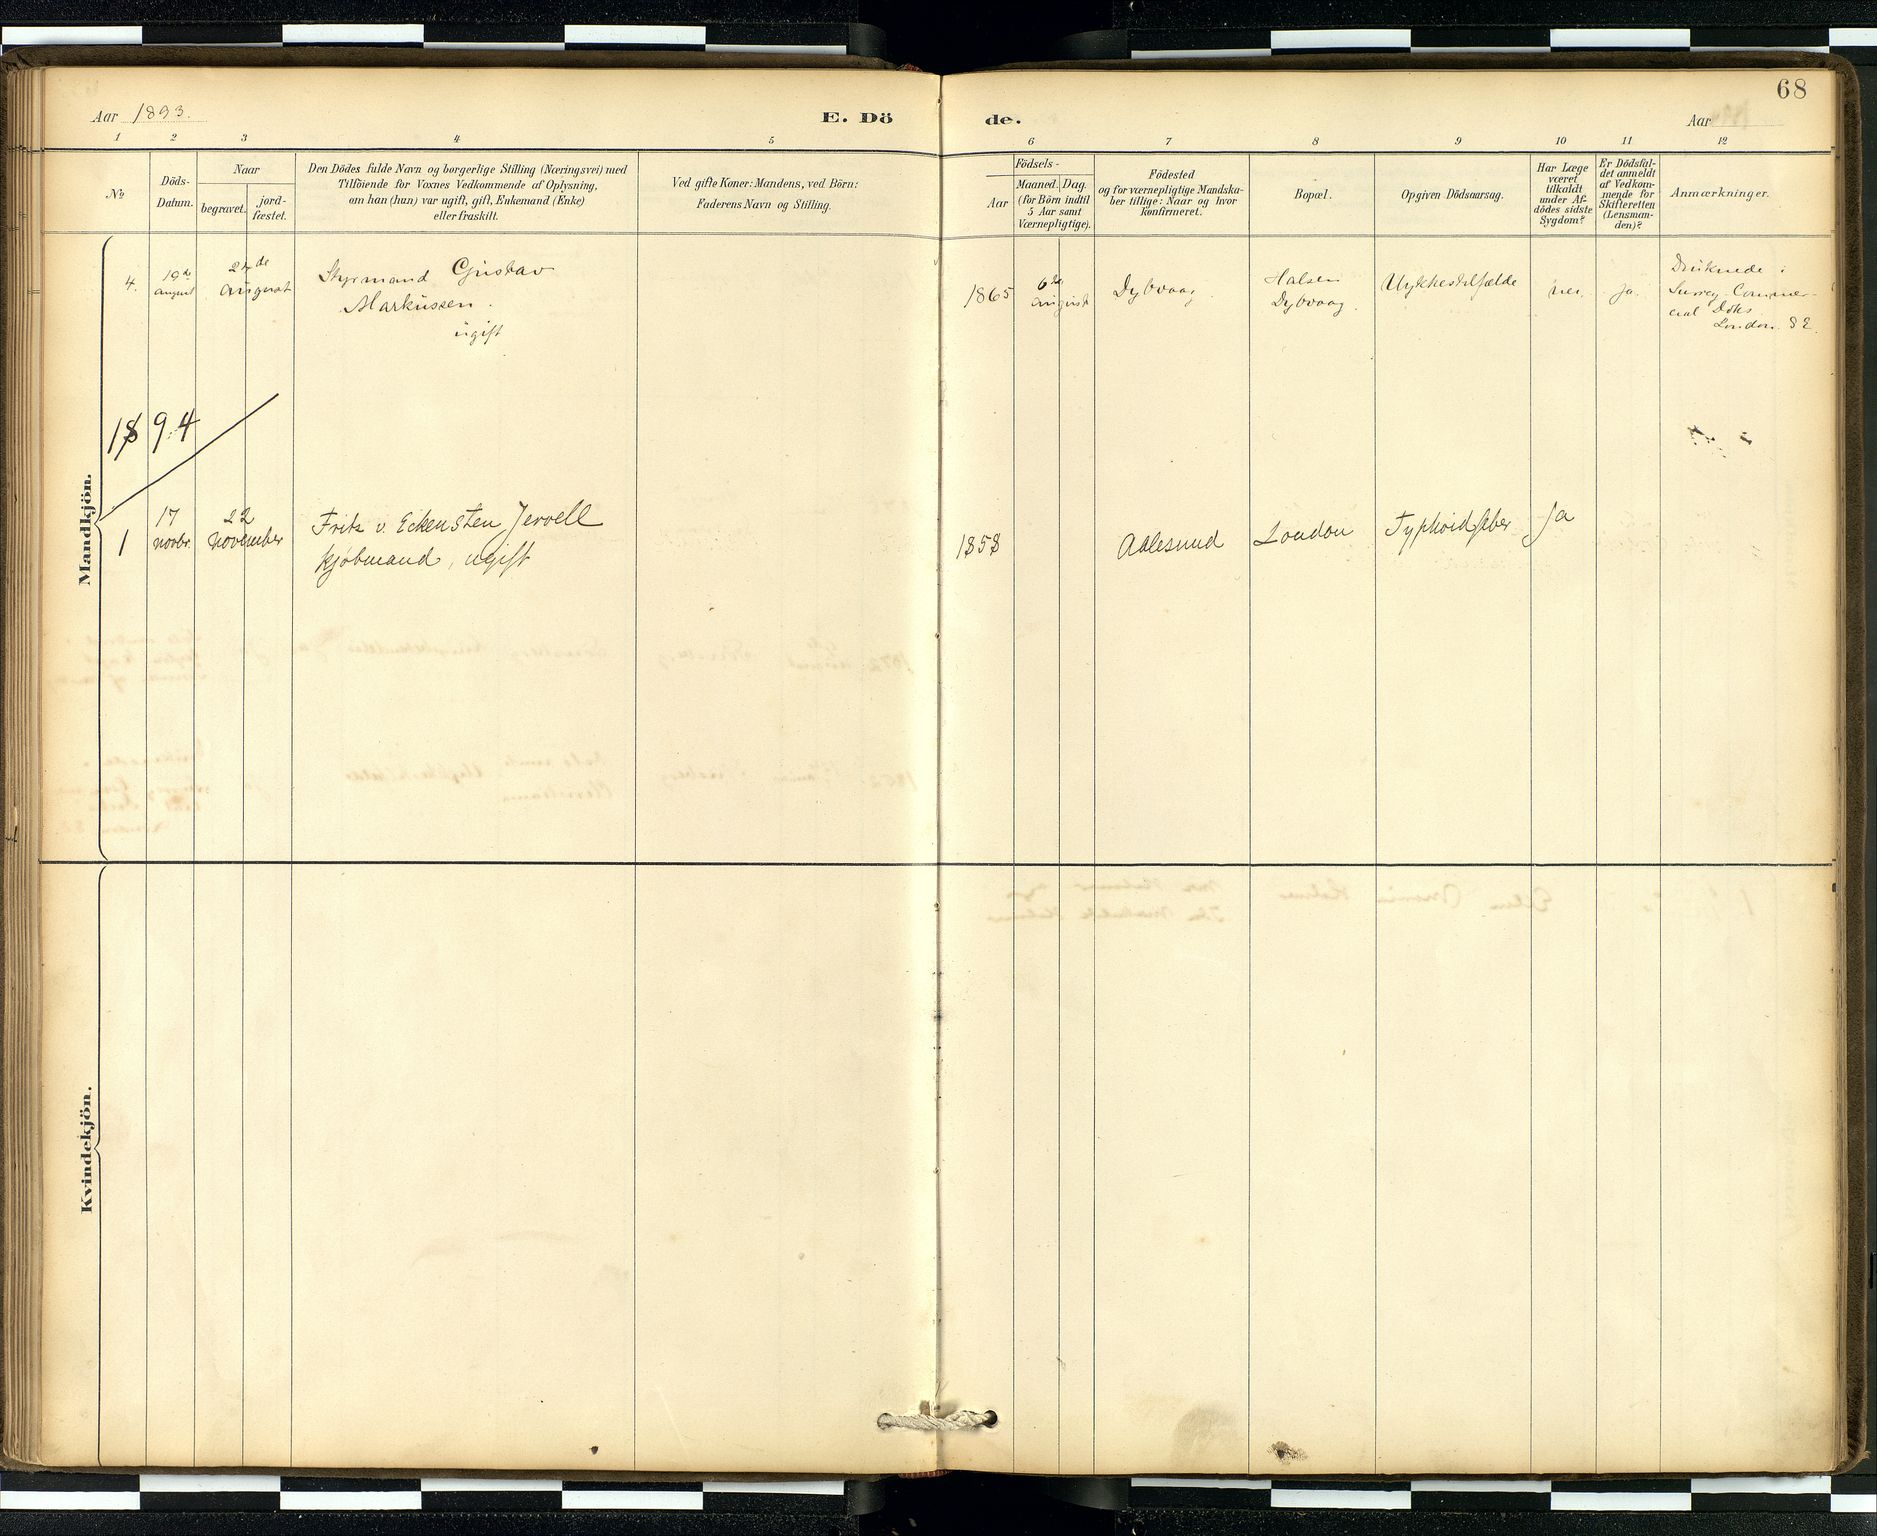 68
Aar 1893.
E. Dö de.
Aar
1 2 3 4 5 6 7 8 9 10 11 12
No.
Döds-
Datum.
Naar
begravet.
jord-
fæstet.
Den Dödes fulde Navn og borgerlige Stilling (Næringsvei) med
Tilföiende for Voxnes Vedkommende af Oplysning,
om han (hun) var ugift, gift, Enkemand (Enke)
eller fraskilt.
Ved gifte Koner: Mandens, ved Börn:
Faderens Navn og Stilling.
Födsels-
Aar
Maaned. Dag.
(for Börn indtil
5 Aar samt
Værnepligtige).
Födested
og for værnepligtige Mandska-
ber tillige: Naar og hvor
konfirmeret.
Bopæl.
Opgiven Dödsaarsag.
Har Læge
været
tilkaldt
under Af-
dödes sidste
Sygdom?
Er Dödsfal-
det anmeldt
af Vedkom-
mende for
Skifteretten
(Lensman-
den)?
Anmærkninger.
Mandkjön.
4.
19de
august
24de
august
Styrmand Gustav
Markussen.
ugift
1865
6te
august
Dybvaag
Halsen
Dybvaag.
Ulykkestilfælde
nei.
ja.
Druknede i
Surrey Commer-
cial Doks
London. S E.
1894
1
17
novbr.
22
november
Fritz v. Eckensten Jervell
kjøbmand, ugift
1858
Aalesund
London
Typhoidfeber
Ja
Kvindekjön.